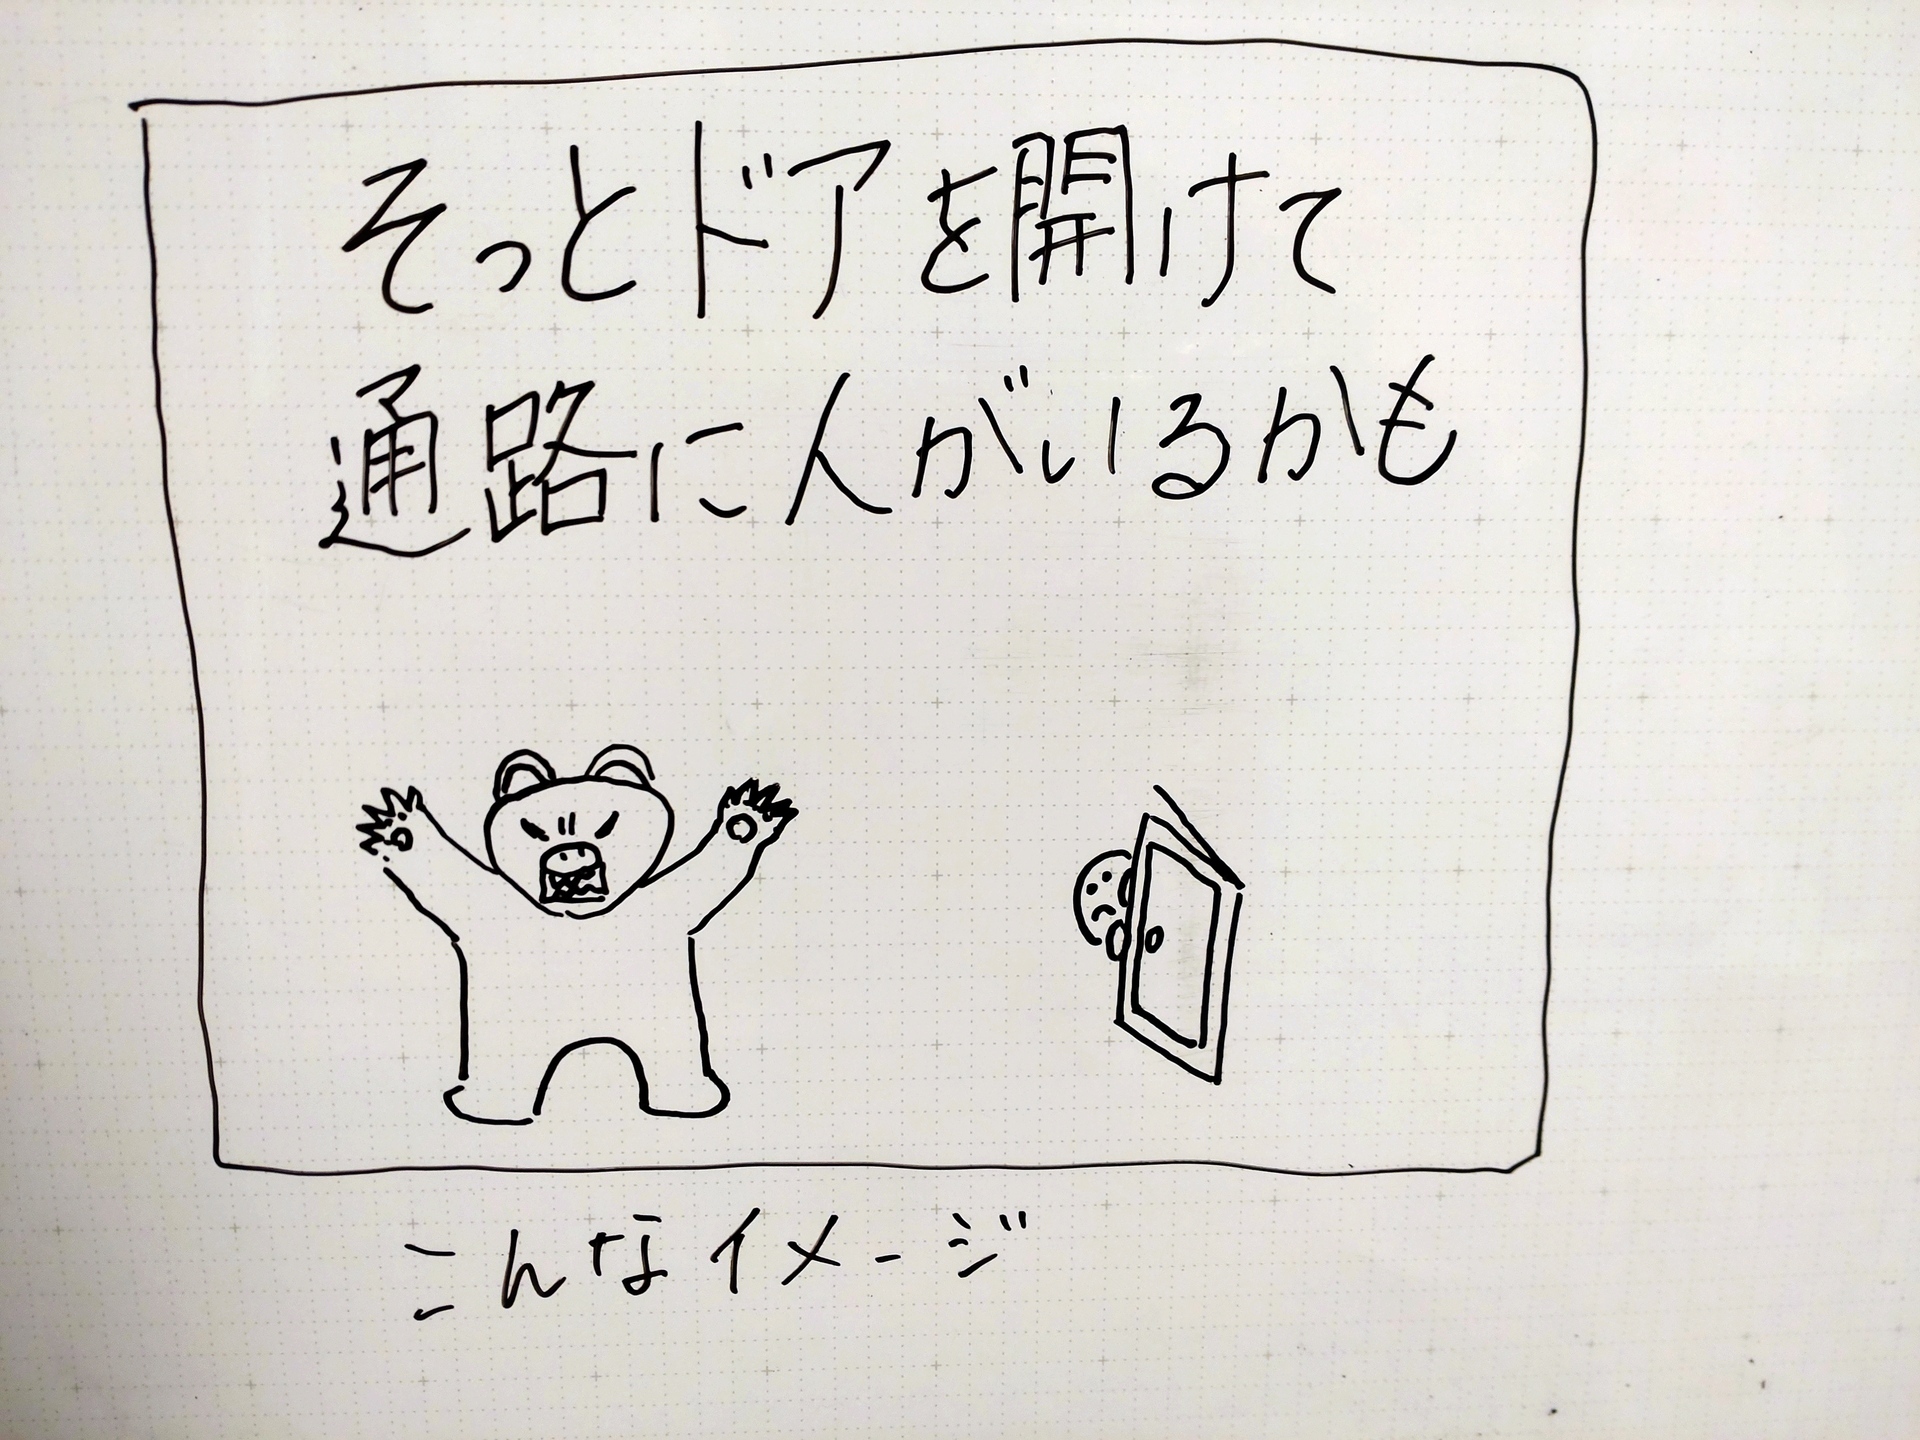 そっとドアを開けて
通路に人がいるかも
こんなイメージ